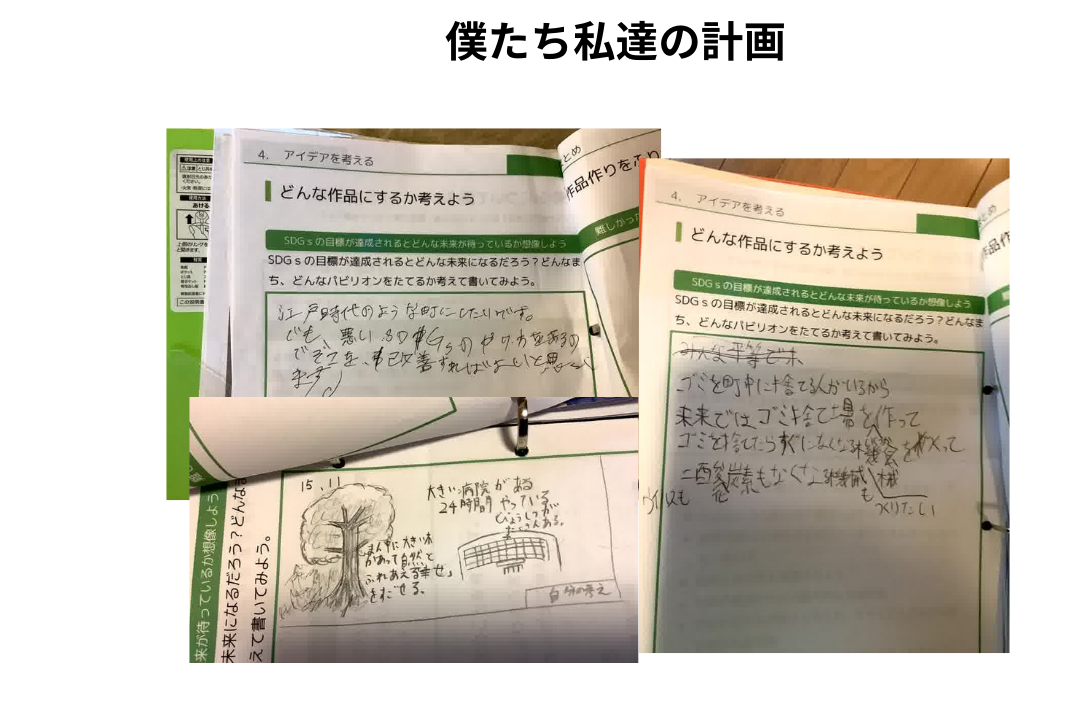 僕たち私達の計画
4. アイデアを考える
どんな作品にするか考えよう
SDGsの目標が達成されるとどんな未来が待っているか想像しよう
SDGsの目標が達成されるとどんな未来になるだろう？どんなま
ち、どんなパビリオンをたてるか考えて書いてみよう。
江戸時代のような町にしたいです。
でも、悪い
改善すればよいと思い
ます
とめ
作品作りをふり
難しかった
使用上の注意
使用方法
あける
4. アイデアを考える
どんな作品にするか考えよう
SDGsの目標が達成されるとどんな未来が待っているか想像しよう
SDGsの目標が達成されるとどんな未来になるだろう？どんなま
ち、どんなパビリオンをたてるか考えて書いてみよう。
みんな平等で木
ゴミを町中に捨てる人がいるから
未来ではゴミ捨て場を作って
ゴミを捨てたらすぐになくなる機会を
二酸化炭素もなくな
ウイルスも
も
つくりたい
来が待っているか想像しよう
未来になるだろう？どんな
えて書いてみよう。
15、11
大きい病院がある
24時間やっている
びょうしつが
たくさんある。
まん中に大きい木
があって自然と
ふれあえる幸せ
をすごせる。
自分の考え